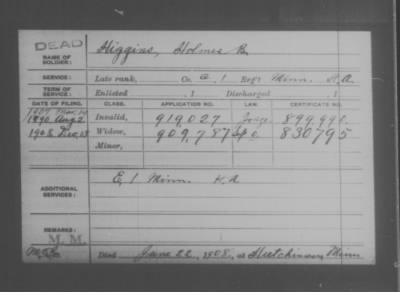 DEAD
NAME OF SOLDIER: Higgins, Holmes B.
SERVICE: Late rank, Co. C, 1 Reg't Minn. H. A.
TERM OF SERVICE: Enlisted , 1 Discharged , 1
DATE OF FILING. CLASS. APPLICATION NO. LAW. CERTIFICATE NO.
1890 Aug 2 Invalid, 919,027 899,990.
1908 Dec, 13 Widow, 909,787 830795
Minor,
ADDITIONAL SERVICES: E, 1 Minn. H. A
REMARKS:
M. M.
Died June 22, 1908, at Hutchinson Minn